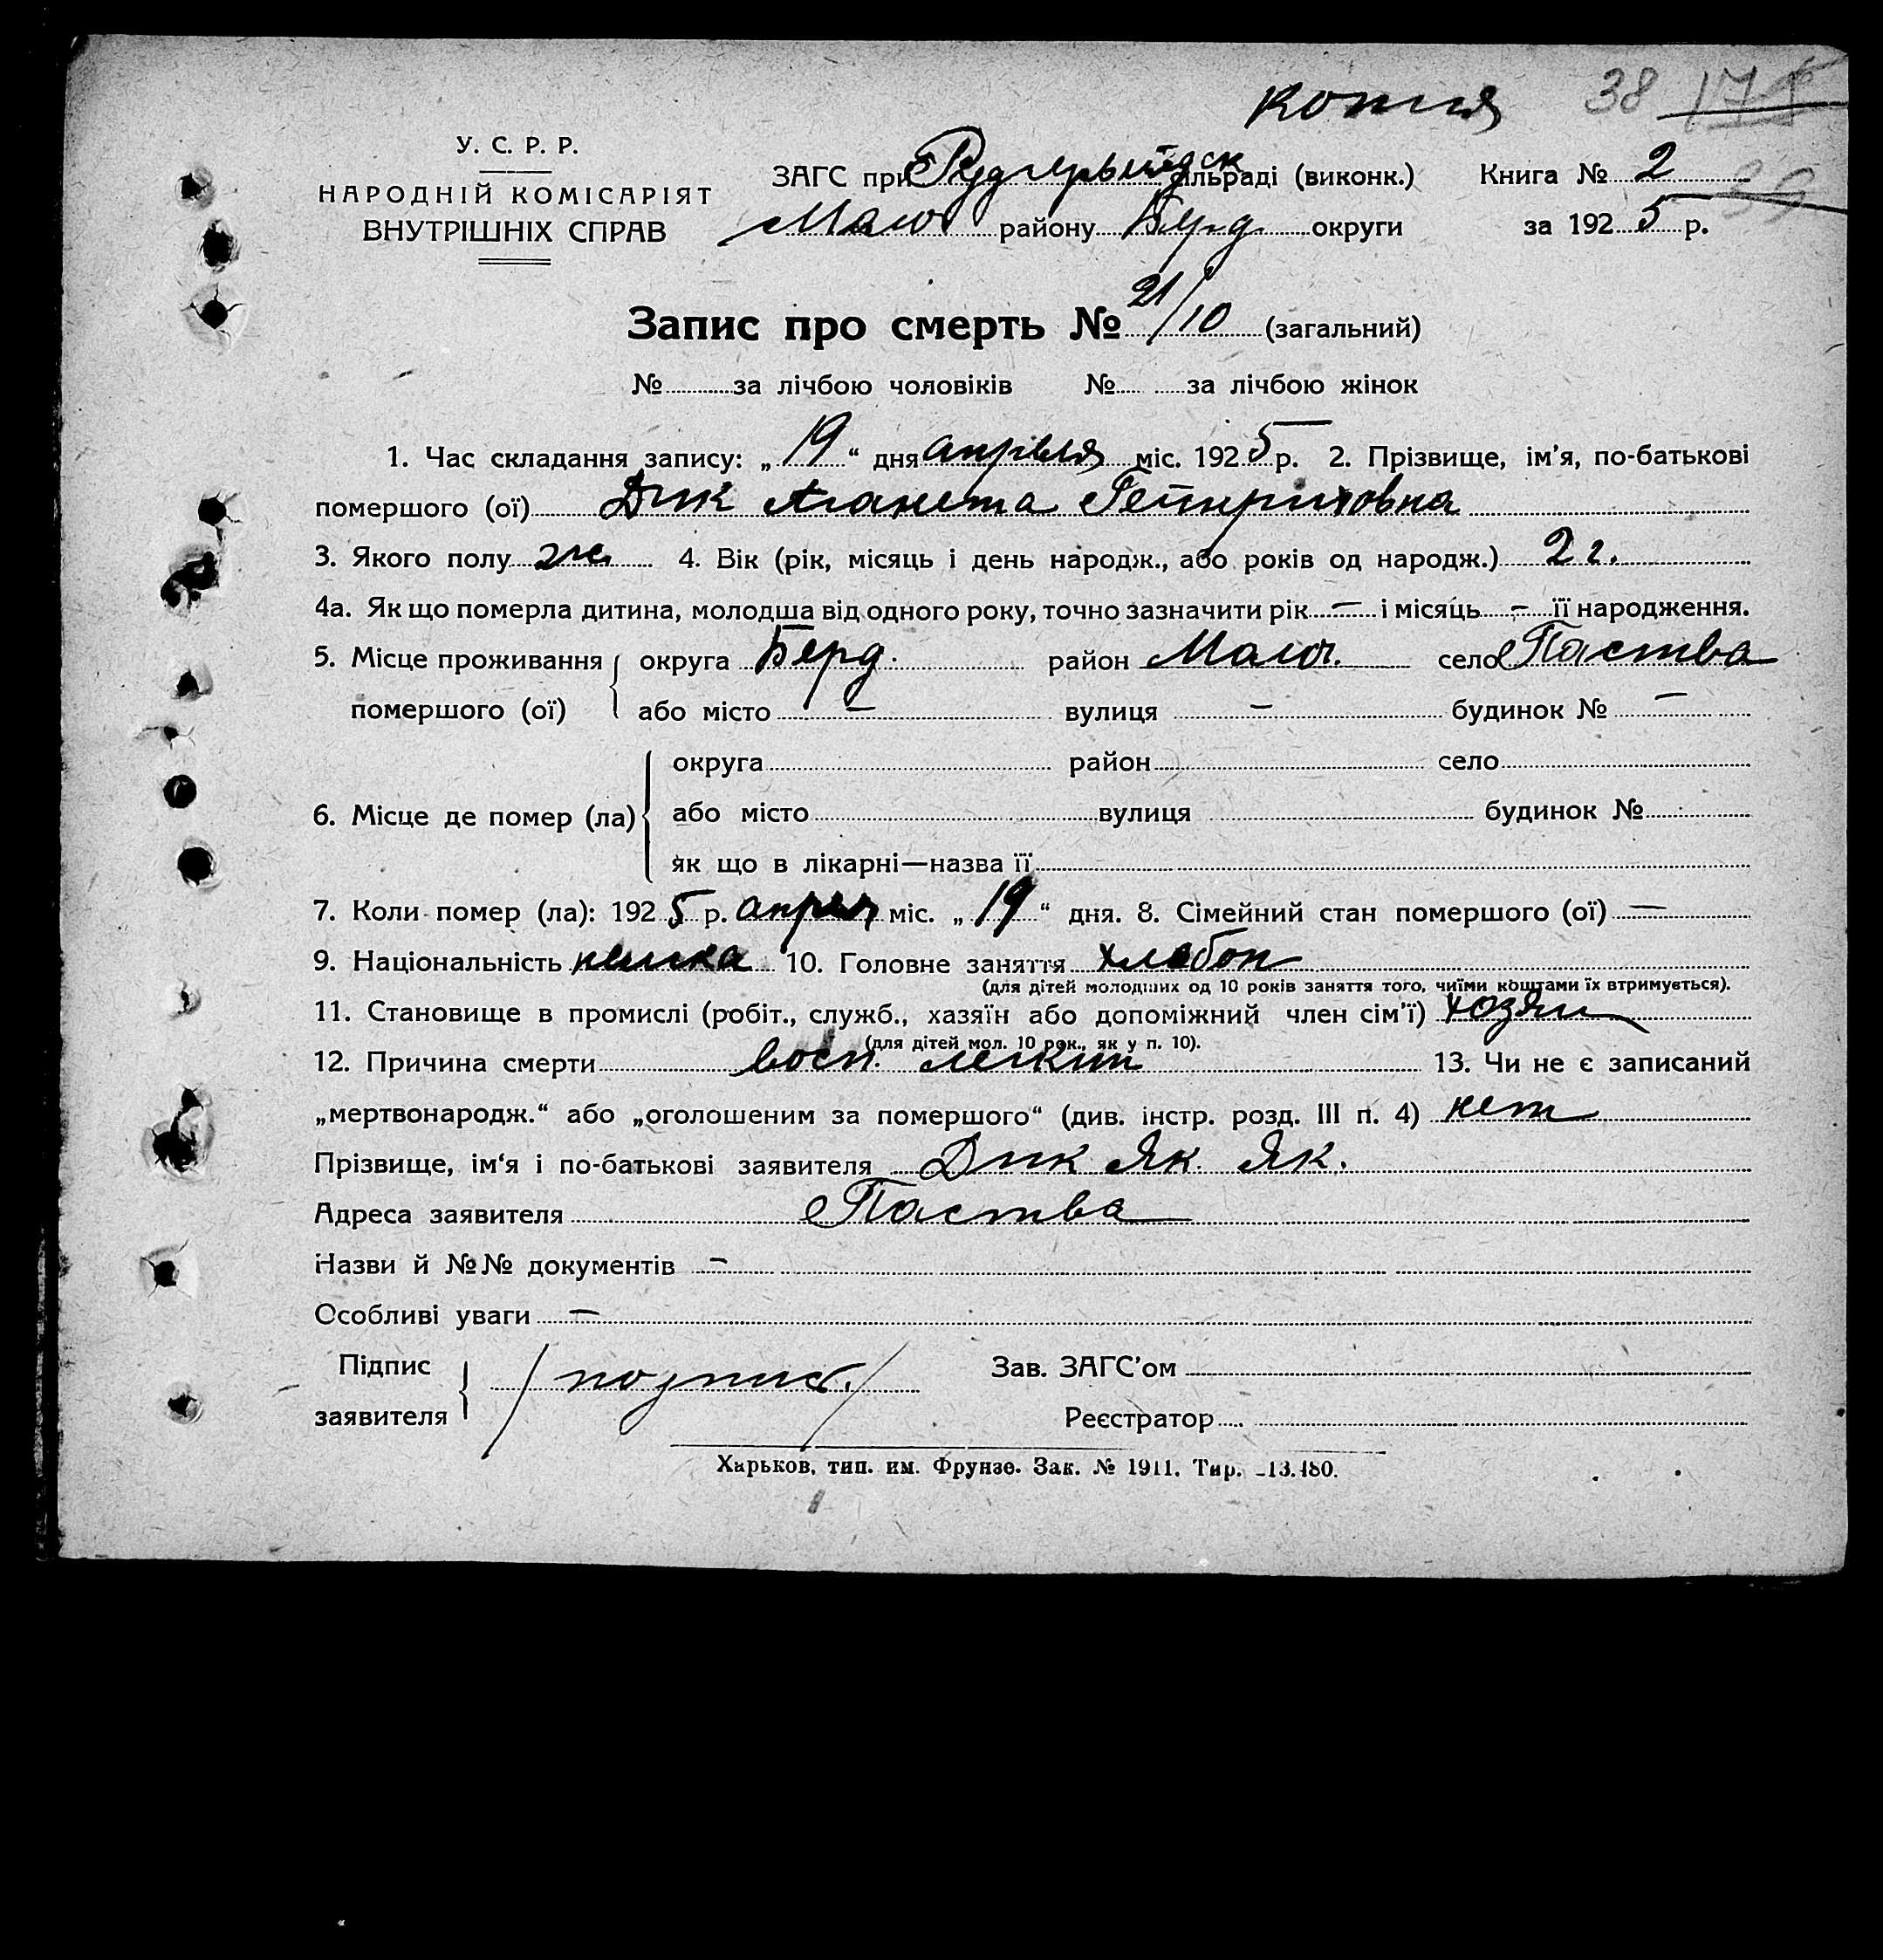 копия 38 174
У. С. Р. Р.
НАРОДНІЙ КОМІСАРІЯТ
ВНУТРІШНІХ СПРАВ
ЗАГС при сільраді (виконк.) Книга № 2
Молоч району Берд. округи за 1925 р. 39
Запис про смерть № 21/10 (загальний)
№ за лічбою чоловіків № за лічбою жінок
1. Час складання запису: „19“ дня апреля міс. 1925 р. 2. Прізвище, ім’я, по-батькові
помершого (ої) Дик Аганета Гейнриховна
3. Якого полу ж. 4. Вік (рік, місяць і день народж., або років од народж.) 2 г.
4а. Як що померла дитина, молодша від одного року, точно зазначити рік — і місяць — її народження.
5. Місце проживання округа Берд. район Молоч. село Паства
помершого (ої) або місто — вулиця — будинок № —
округа район село
6. Місце де помер (ла) або місто вулиця будинок №
як що в лікарні—назва її
7. Коли помер (ла): 1925 р. апреля міс. „19“ дня. 8. Сімейний стан помершого (ої) —
9. Національність немка 10. Головне заняття хлебоп
(для дітей молодших од 10 років заняття того, чиїми коштами їх втримується).
11. Становище в промислі (робіт., служб., хазяїн або допоміжний член сім’ї) хозяин
(для дітей мол. 10 рок., як у п. 10).
12. Причина смерти восп. легких 13. Чи не є записаний
„мертвонародж.“ або „оголошеним за помершого“ (див. інстр. розд. III п. 4) нет
Прізвище, ім‘я і по-батькові заявителя Дик Як. Як.
Адреса заявителя Паства
Назви й №№ документів —
Особливі уваги —
Підпис /подпись/ Зав. ЗАГС’ом
заявителя Реєстратор
Харьков, тип. им. Фрунзе. Зак. № 1911. Тир. 13.480.